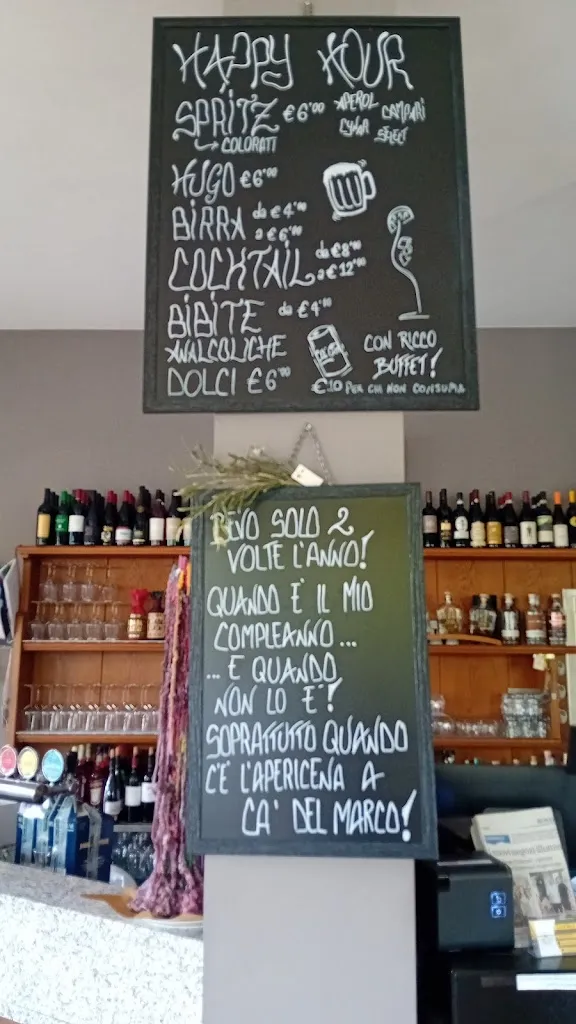 HAPPY HOUR
SPRITZ €6'00 APEROL CAMPARI
CYNAR SELECT
COLORATI
HUGO €6'00
BIRRA da €4'00
a €6'00
COCKTAIL da €8'00
a €12'00
BIBITE da €4'00
ANALCOLICHE
CON RICCO
BUFFET!
DOLCI €6'00
€10 PER CHI NON CONSUMA
BEVO SOLO 2
VOLTE L'ANNO!
QUANDO È IL MIO
COMPLEANNO...
... E QUANDO
NON LO È!
SOPRATTUTTO QUANDO
C'È L'APERICENA A
CA' DEL MARCO!